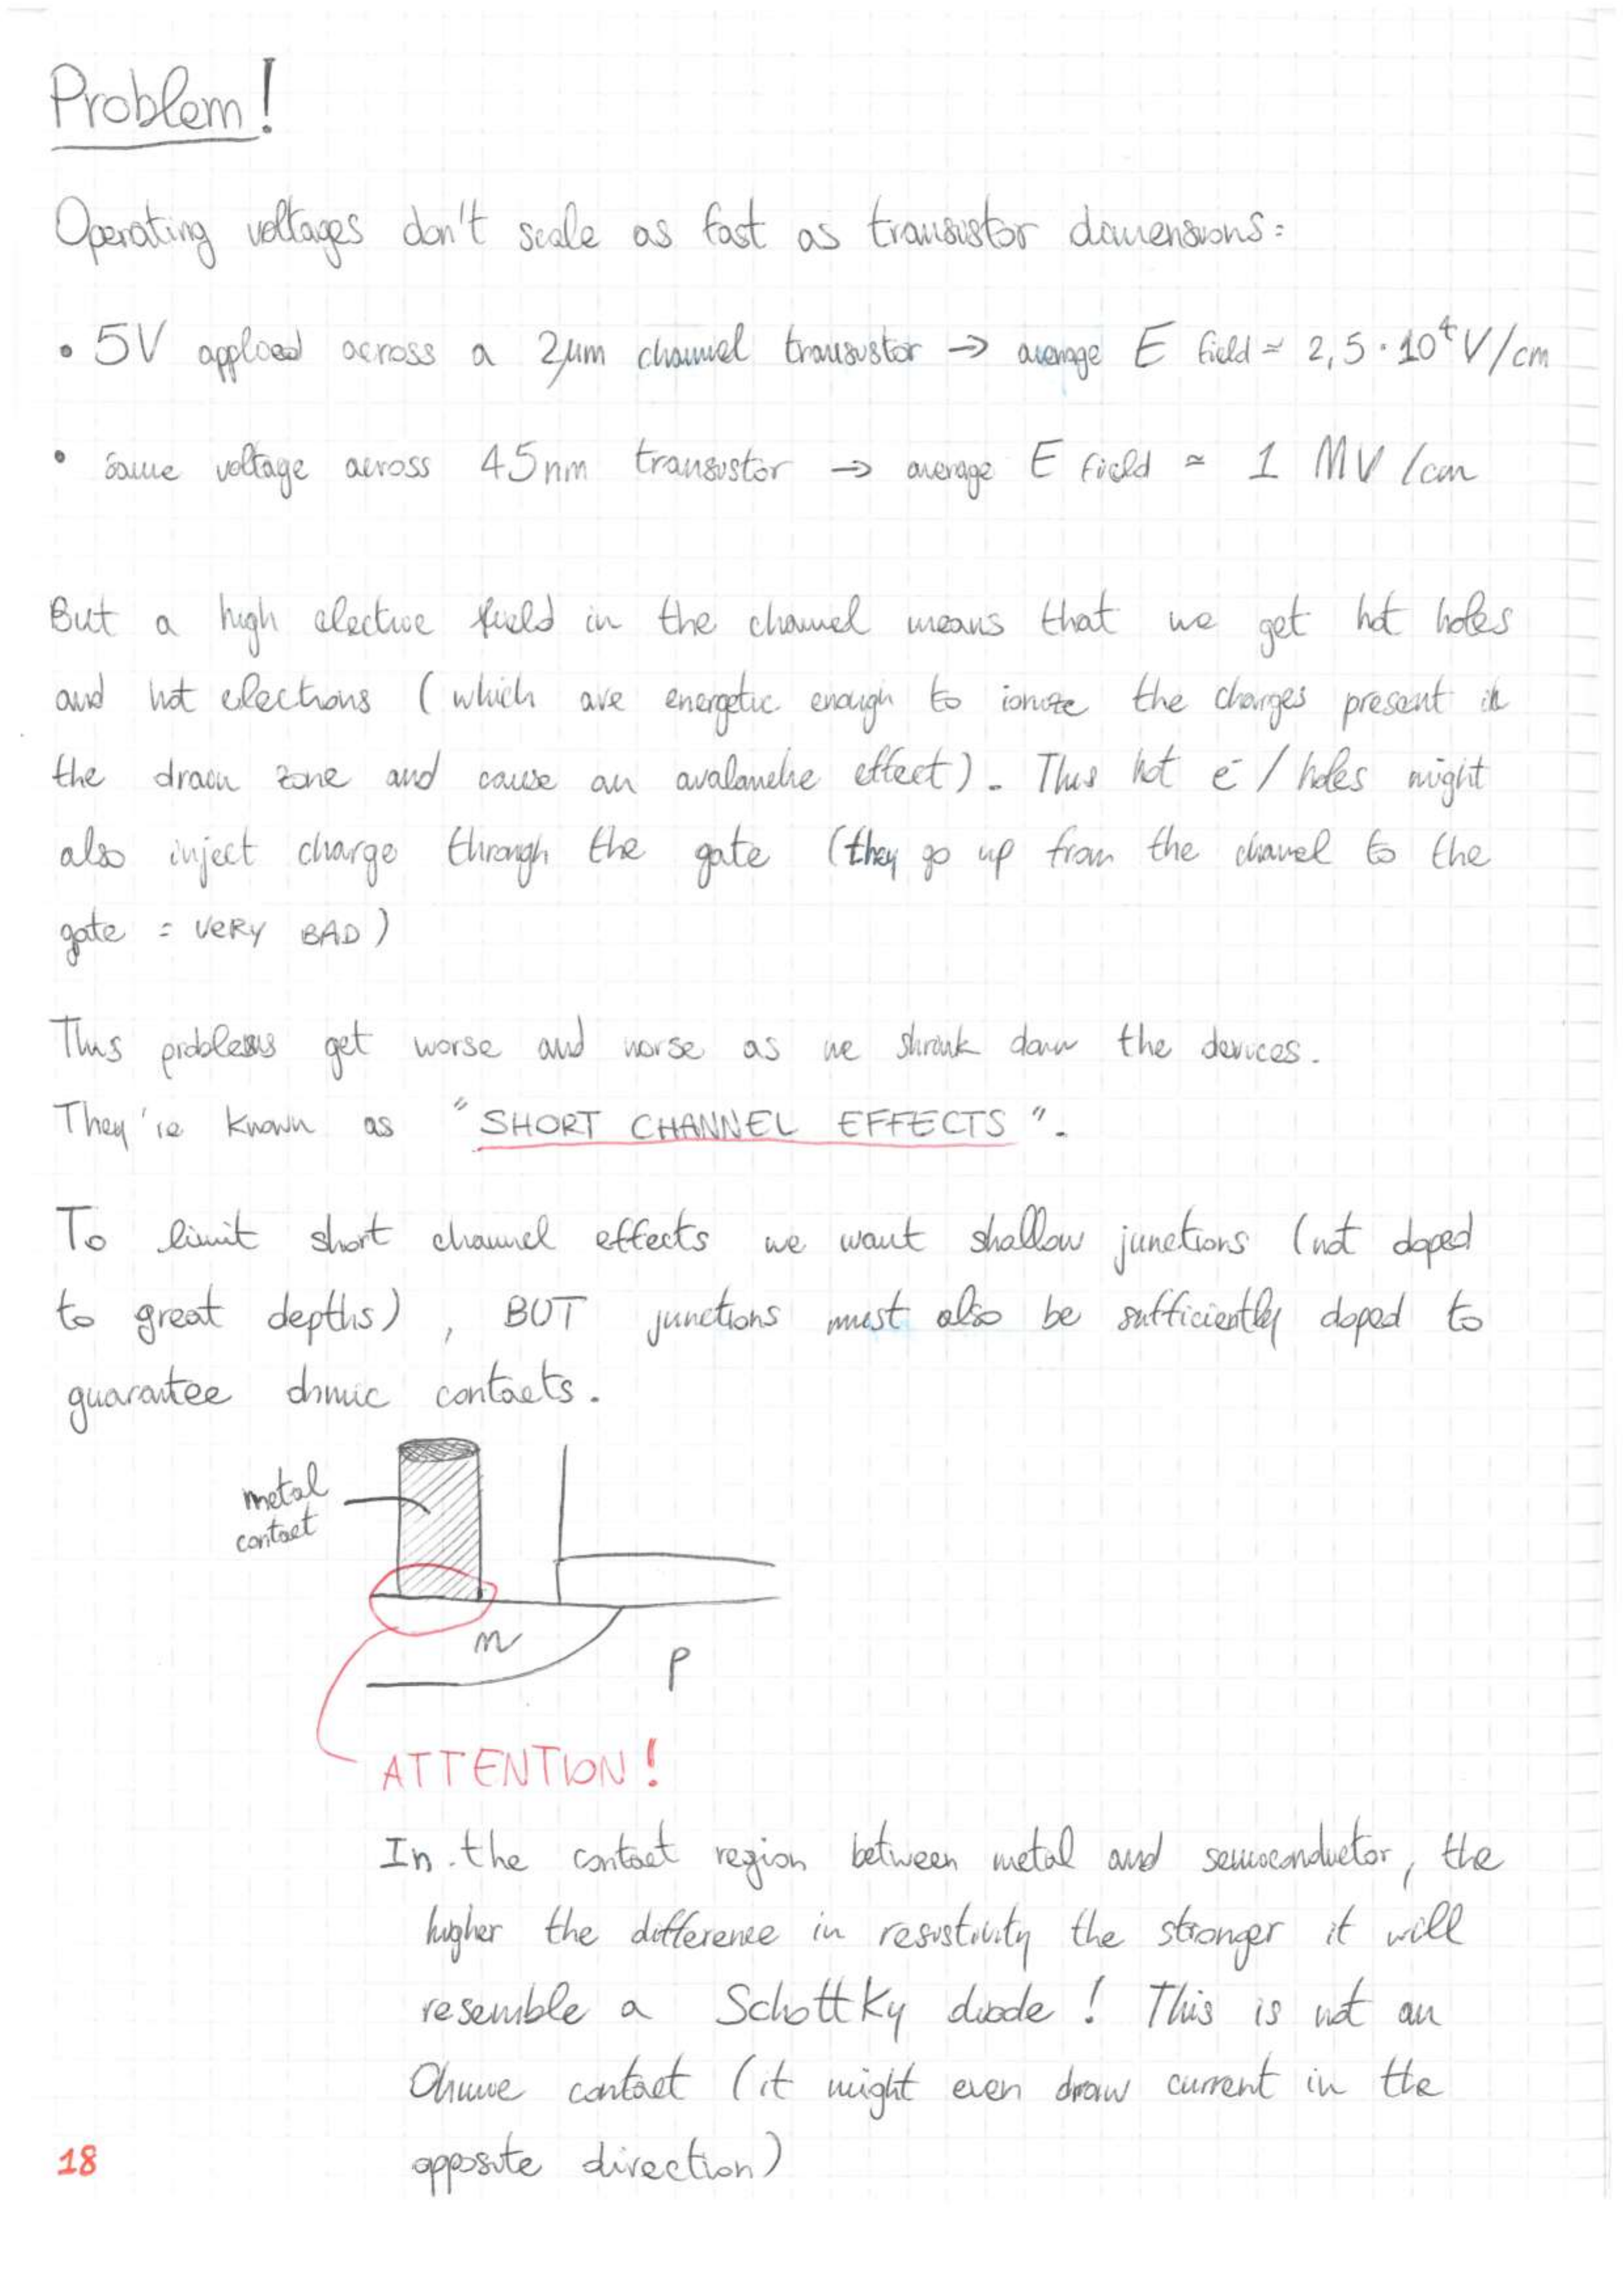 Problem!
Operating voltages don't scale as fast as transistor dimensions:
• 5V applied across a 2μm channel transistor → average E field ≃ 2,5 · 10⁴ V/cm
• same voltage across 45nm transistor → average E field ≃ 1 MV/cm
But a high electric field in the channel means that we get hot holes
and hot electrons (which are energetic enough to ionize the charges present in
the drain zone and cause an avalanche effect). This hot e⁻/holes might
also inject charge through the gate (they go up from the channel to the
gate = VERY BAD)
This problems get worse and worse as we shrink down the devices.
They're known as "SHORT CHANNEL EFFECTS".
To limit short channel effects we want shallow junctions (not doped
to great depths), BUT junctions must also be sufficiently doped to
guarantee ohmic contacts.
metal
contact
n
p
ATTENTION!
In the contact region between metal and semiconductor, the
higher the difference in resistivity the stronger it will
resemble a Schottky diode! This is not an
Ohmic contact (it might even draw current in the
opposite direction)
18